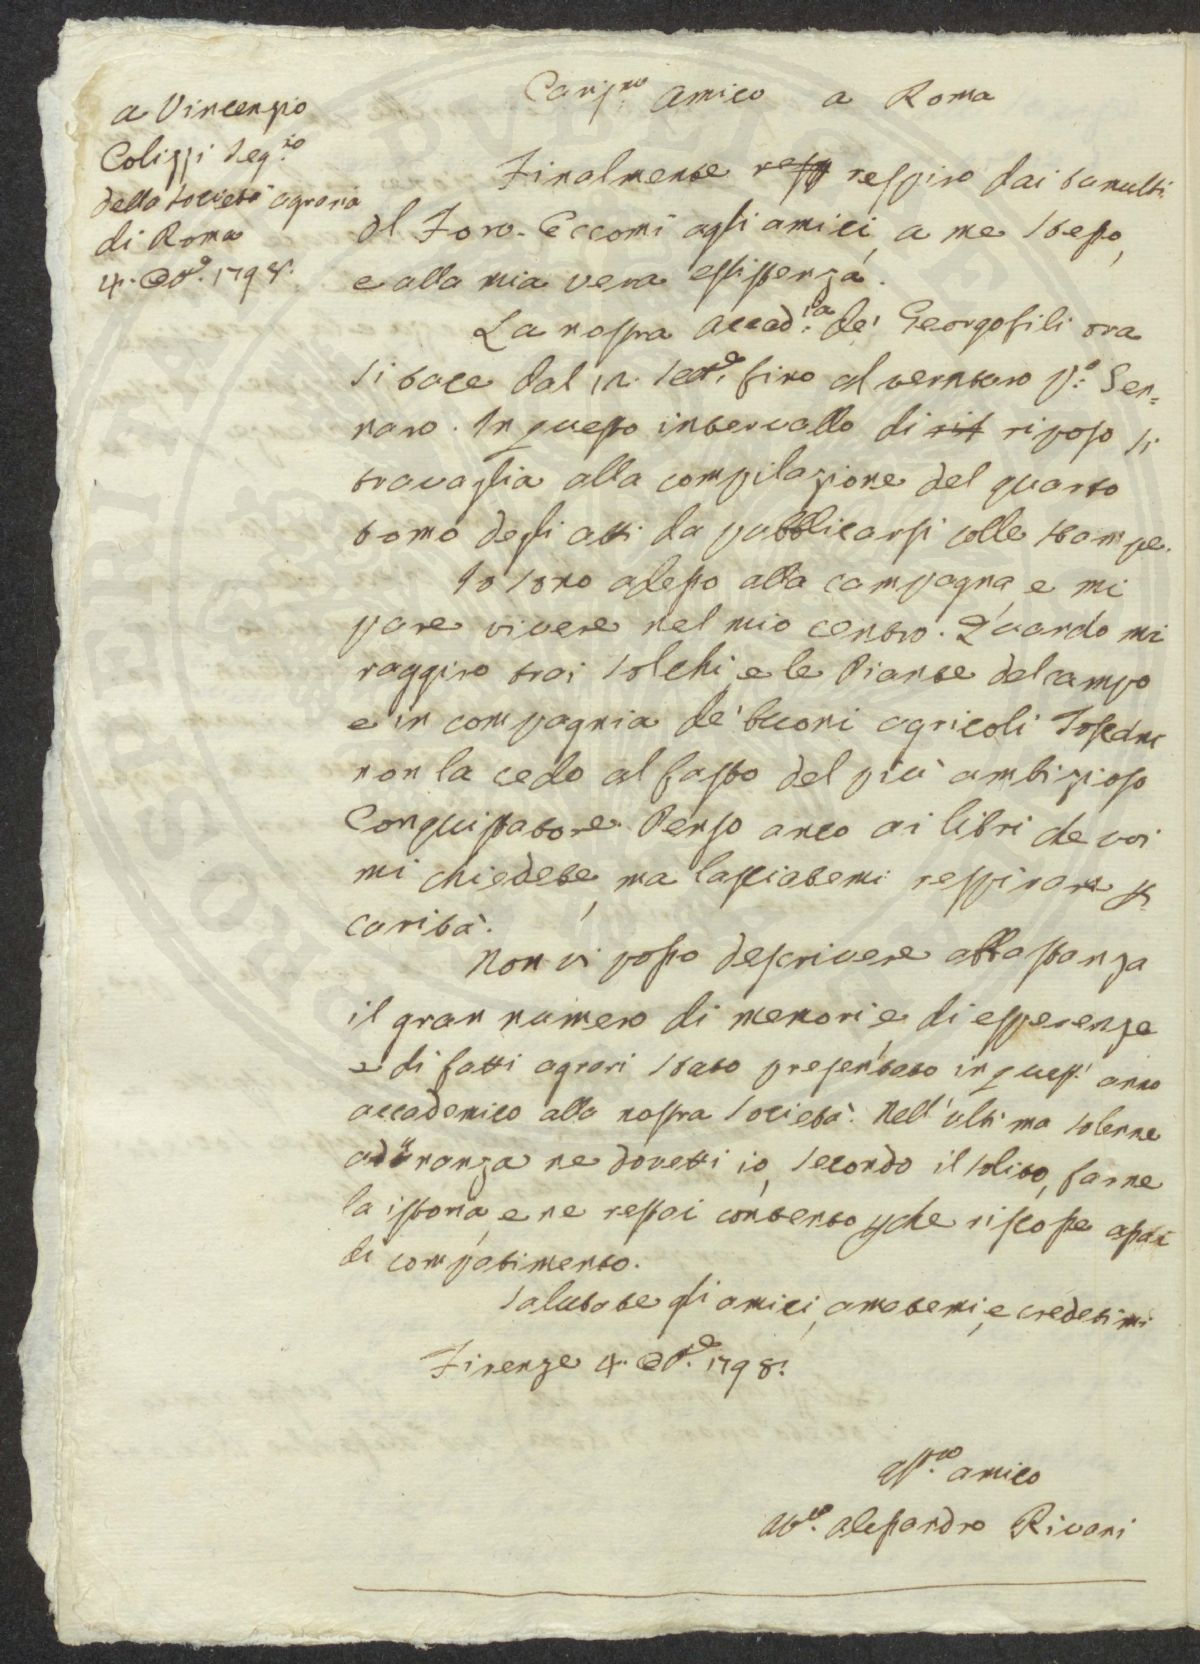 a Vincenzio
Colizzi Seg.rio
della Società agraria
di Roma
4. 8bre. 1798.
Cariss.mo Amico a Roma
Finalmente resp respiro dai tumulti
del Foro. Eccomi agli amici, a me stesso,
e alla mia vera essistenza.
La nostra Accad.ia de' Georgofili ora
si tace dal 12. Settre. fino al venturo p.o Gen=
naro. In questo intervallo di rit riposo si
travaglia alla compilazione del quarto
tomo degli atti da pubblicarsi colle stampe.
Io sono adesso alla campagna, e mi
pare vivere nel mio centro. Quando mi
raggiro trai solchi, e le Piante del campo
e in compagnia de' buoni agricoli Toscani
non la cedo al fasto del più ambizioso
Conquistatore. Penso anco ai libri che voi
mi chiedete, ma lasciatemi respirare p
carità.
Non vi posso descrivere abbastanza
il gran numero di memorie, di esperenze
e di fatti agrari stato presentato in quest' anno
accademico alla nostra Società. Nell' ultima solenne
adunanza ne dovetti io, secondo il solito, farne
la istoria, e ne restai contento pche riscosse assai
di compatimento.
Salutate gli amici, amatemi, e credetimi
Firenze 4. 8bre. 1798.
aff.mo amico
Avv.to Alessandro Rivani